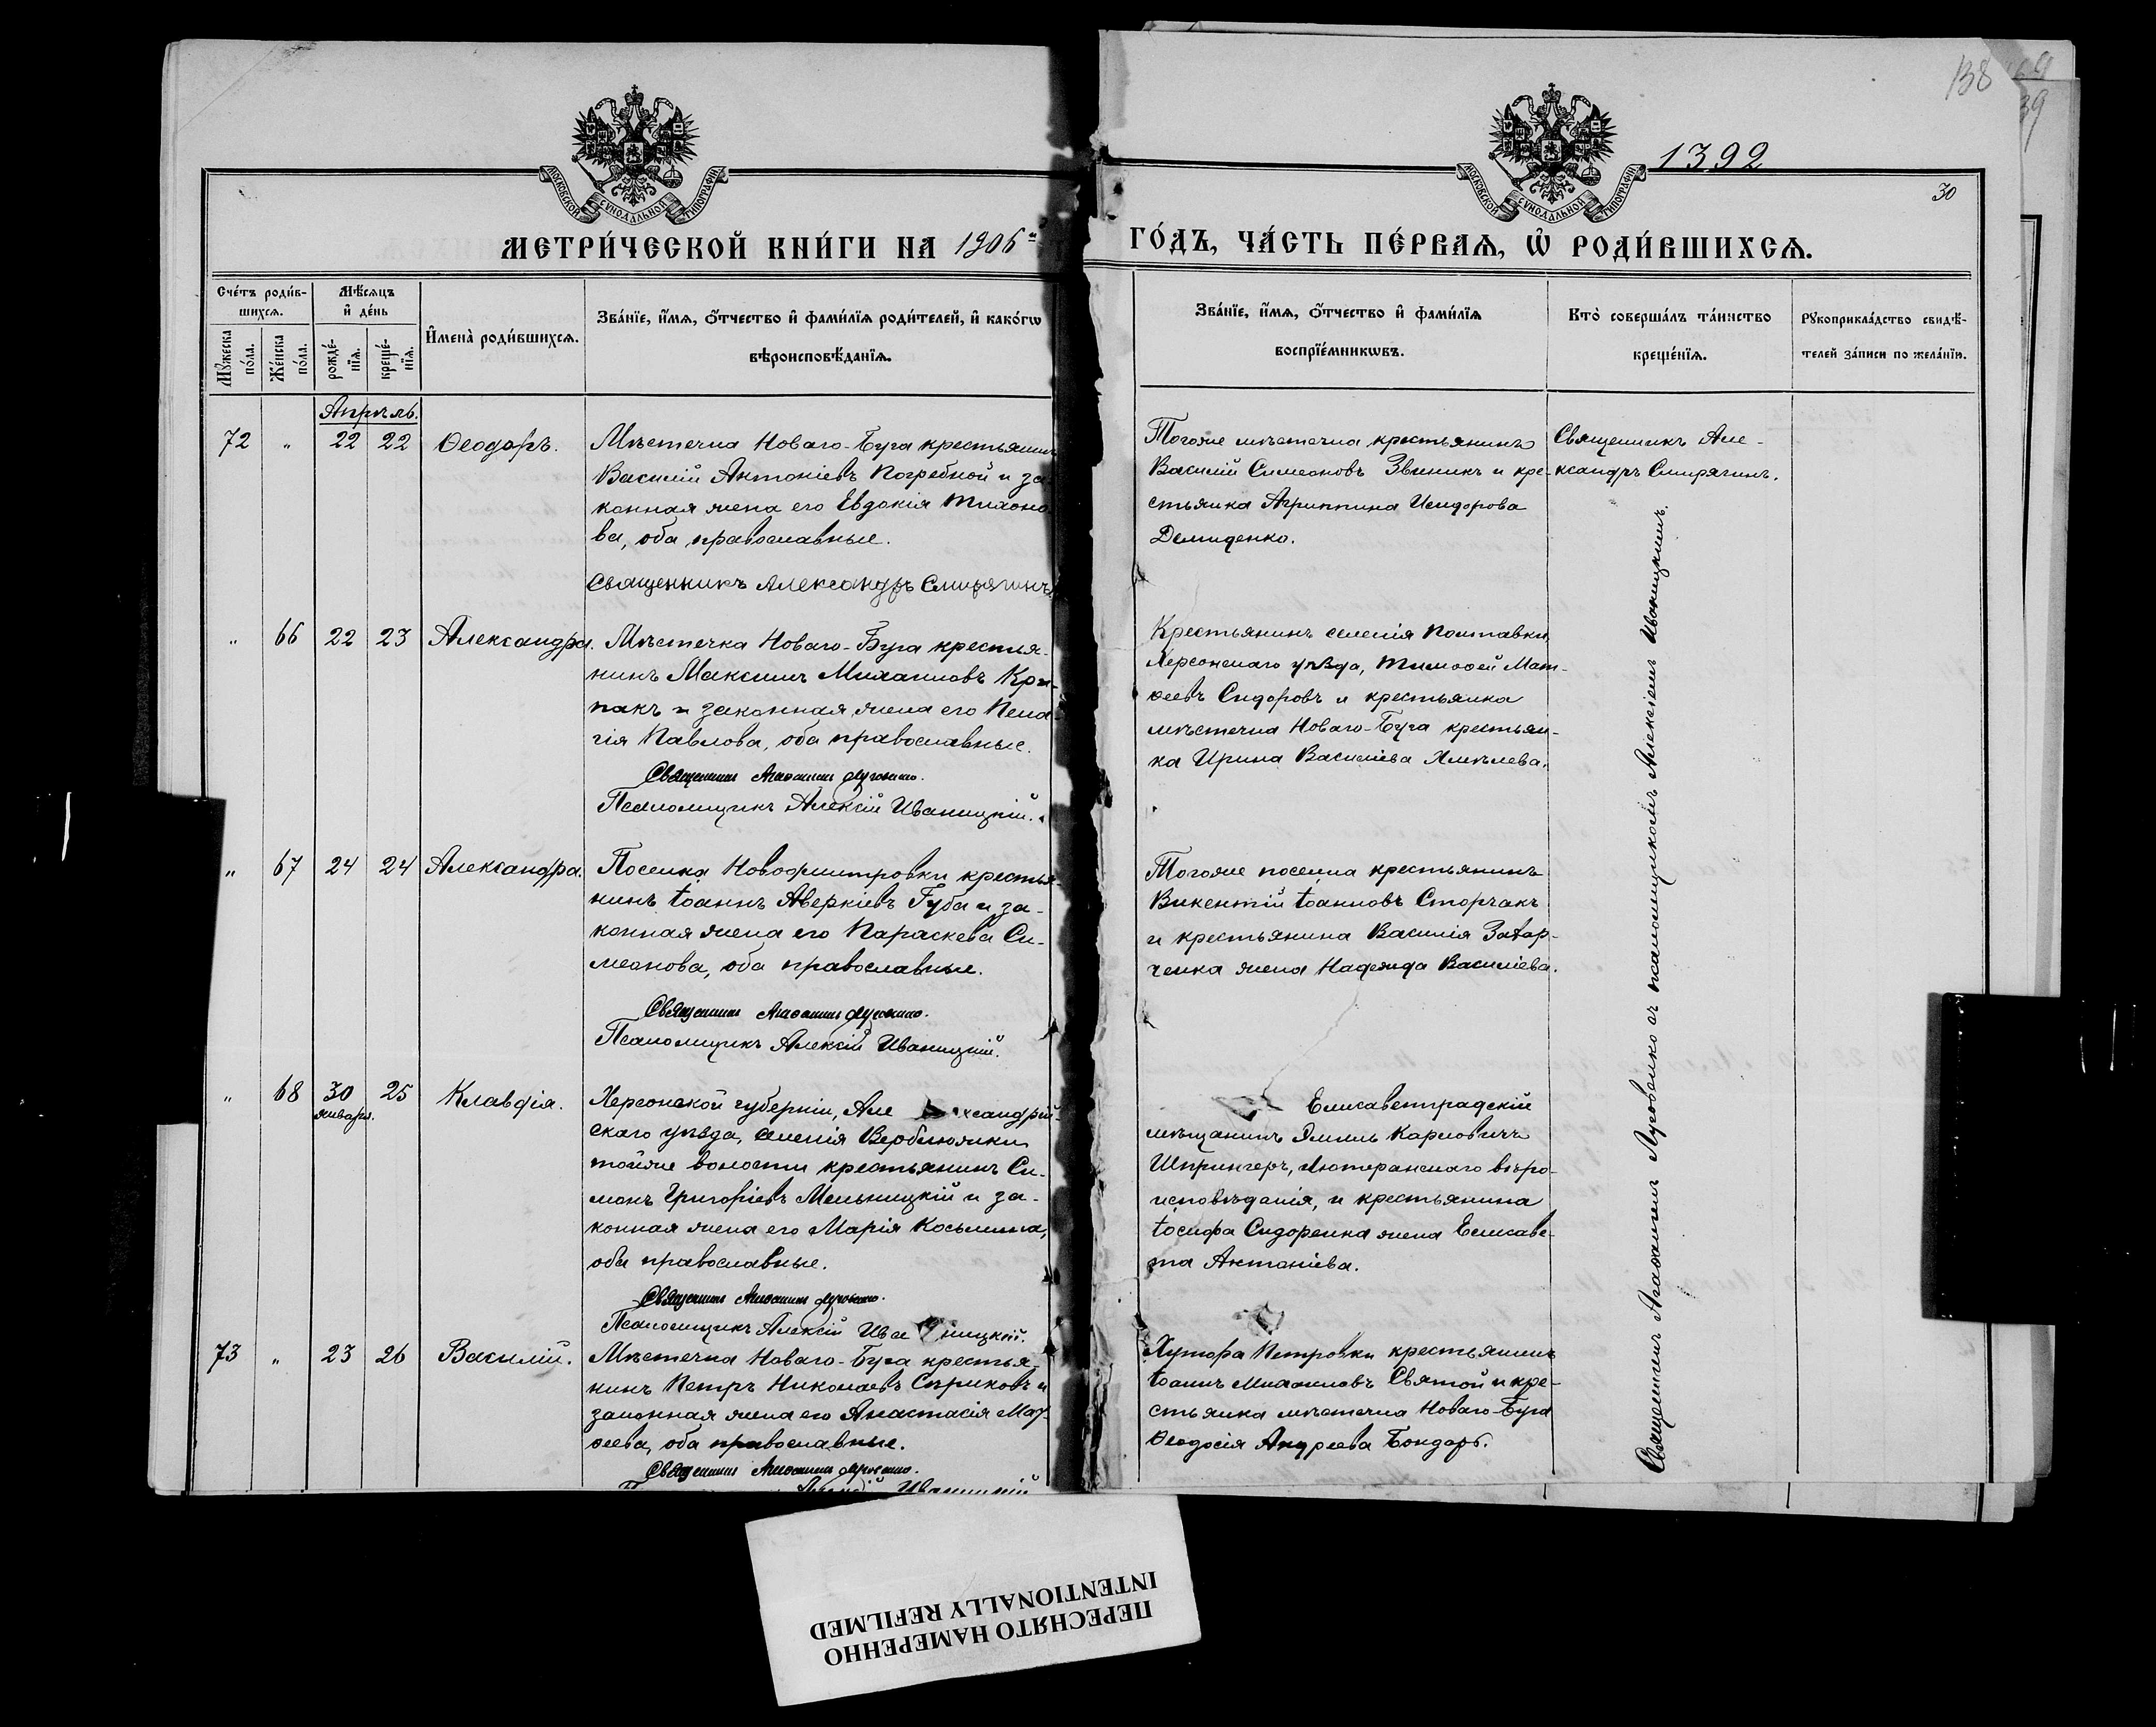 138
1392
30
МОСКОВСКОЙ СѴНОДАЛЬНОЙ ТИПОГРАФІИ
МОСКОВСКОЙ СѴНОДАЛЬНОЙ ТИПОГРАФІИ
МЕТРИ́ЧЕСКОЙ КНИ́ГИ НА 1906й
ГО́ДЪ, ЧА́СТЬ ПЕ́РВАѦ, Ѡ҆ РОДИ́ВШИХСѦ.
Сче́тъ роди́в-
шихсѧ.
Мꙋ́жеска по́ла.
Же́нска по́ла.
Мѣ́сѧцъ
и҆ де́нь
рожде́-
нїѧ.
креще́-
нїѧ.
И҆мена̀ роди́вшихсѧ.
Зва́нїе, и҆́мѧ, ѻ҆́тчество и҆ фами́лїѧ роди́телей, и҆ како́гѡ
вѣроисповѣ́данїѧ.
Зва́нїе, и҆́мѧ, ѻ҆́тчество и҆ фами́лїѧ
воспрїе́мникѡвъ.
Кто̀ соверша́лъ та́инство
креще́нїѧ.
Рꙋкоприкла́дство свидѣ́-
телей за́писи по жела́нїю.
Апрѣль.
72 " 22 22 Ѳеодоръ.
Мѣстечка Новаго-Буга крестьянинъ
Василій Антоніевъ Погребной и за-
конная жена его Евдокія Тихоно-
ва, оба православные.
Священникъ Александръ Смирягинъ
Тогоже мѣстечка крестьянинъ
Василій Симеоновъ Звиникъ и кре-
стьянка Агриппина Исидорова
Демиденко.
Священникъ Але-
ксандръ Смирягинъ.
" 66 22 23 Александра.
Мѣстечка Новаго-Буга крестья-
нинъ Максимъ Михаиловъ Кри-
пакъ и законная жена его Пела-
гія Павлова, оба православные.
Священникъ Агаѳангелъ Луговенко.
Псаломщикъ Алексій Иваницкій.
Крестьянинъ селенія Полтавки
Херсонскаго уѣзда, Тимоѳей Мат-
ѳеевъ Сидоровъ и крестьянка
мѣстечка Новаго-Буга крестьян-
ка Ирина Василіева Хмѣлева.
" 67 24 24 Александра.
Поселка Новодмитровки крестья-
нинъ Іоаннъ Аверкіевъ Губа и за-
конная жена его Параскева Си-
меонова, оба православные.
Священникъ Агаѳангелъ Луговенко.
Псаломщикъ Алексій Иваницкій.
Тогоже поселка крестьянинъ
Викентій Іоанновъ Сторчакъ
и крестьянина Василія
жена Надежда Василіева.
" 68 30 25 Клавдія.
января.
Херсонской губерніи, Александрій-
скаго уѣзда, селенія Вербл юж ки
тойже волости крестьянинъ Си-
монъ Григоріевъ Мельницкій и за-
конная жена его Марія Косьмина,
оба православные.
Священникъ Агаѳангелъ Луговенко.
Псаломщикъ Алексій Иваницкій.
Елисаветградскій
мѣщанинъ Эмиль Карловичъ
Шпрингеръ, лютеранскаго вѣро-
исповѣданія, и крестьянина
Іосифа Сидоренка жена Елисаве-
та Антоніева.
73 " 23 26 Василій.
Мѣстечка Новаго-Буга крестья-
нинъ Петръ Николаевъ Сѣриковъ и
законная жена его Анастасія Мат-
ѳеева, оба православные.
Священникъ Агаѳангелъ Луговенко.
Псаломщикъ Алексій Иваницкій
Хутора Петровки крестьянинъ
Іоаннъ Михаиловъ Святой и кре-
стьянка мѣстечка Новаго-Буга
Ѳеодосія Андреева Бондарь.
Священникъ Агаѳангелъ Луговенко съ псаломщикомъ Алексіемъ Иваницкимъ.
ПЕРЕСНЯТО НАМЕРЕННО
INTENTIONALLY REFILMED